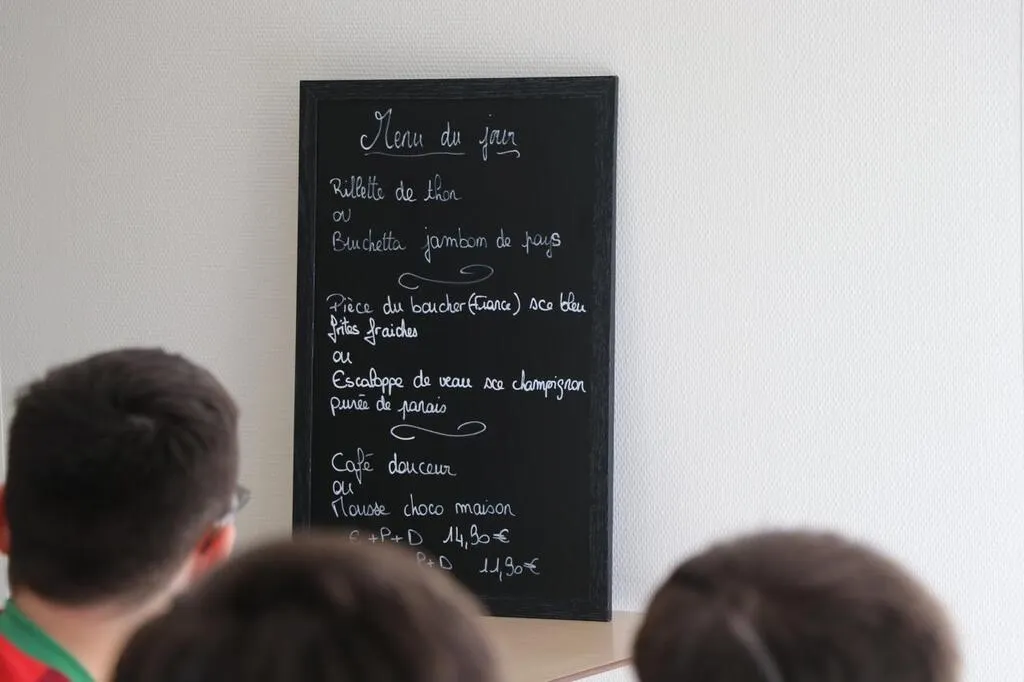 Menu du jour
Rillette de thon
ou
Bruchetta jambom de pays
Pièce du boucher (France) sce bleu
frites fraiches
ou
Escaloppe de veau sce champignon
purée de panais
Café douceur
ou
Mousse choco maison
+P+D 14,90€
P+D 11,90€